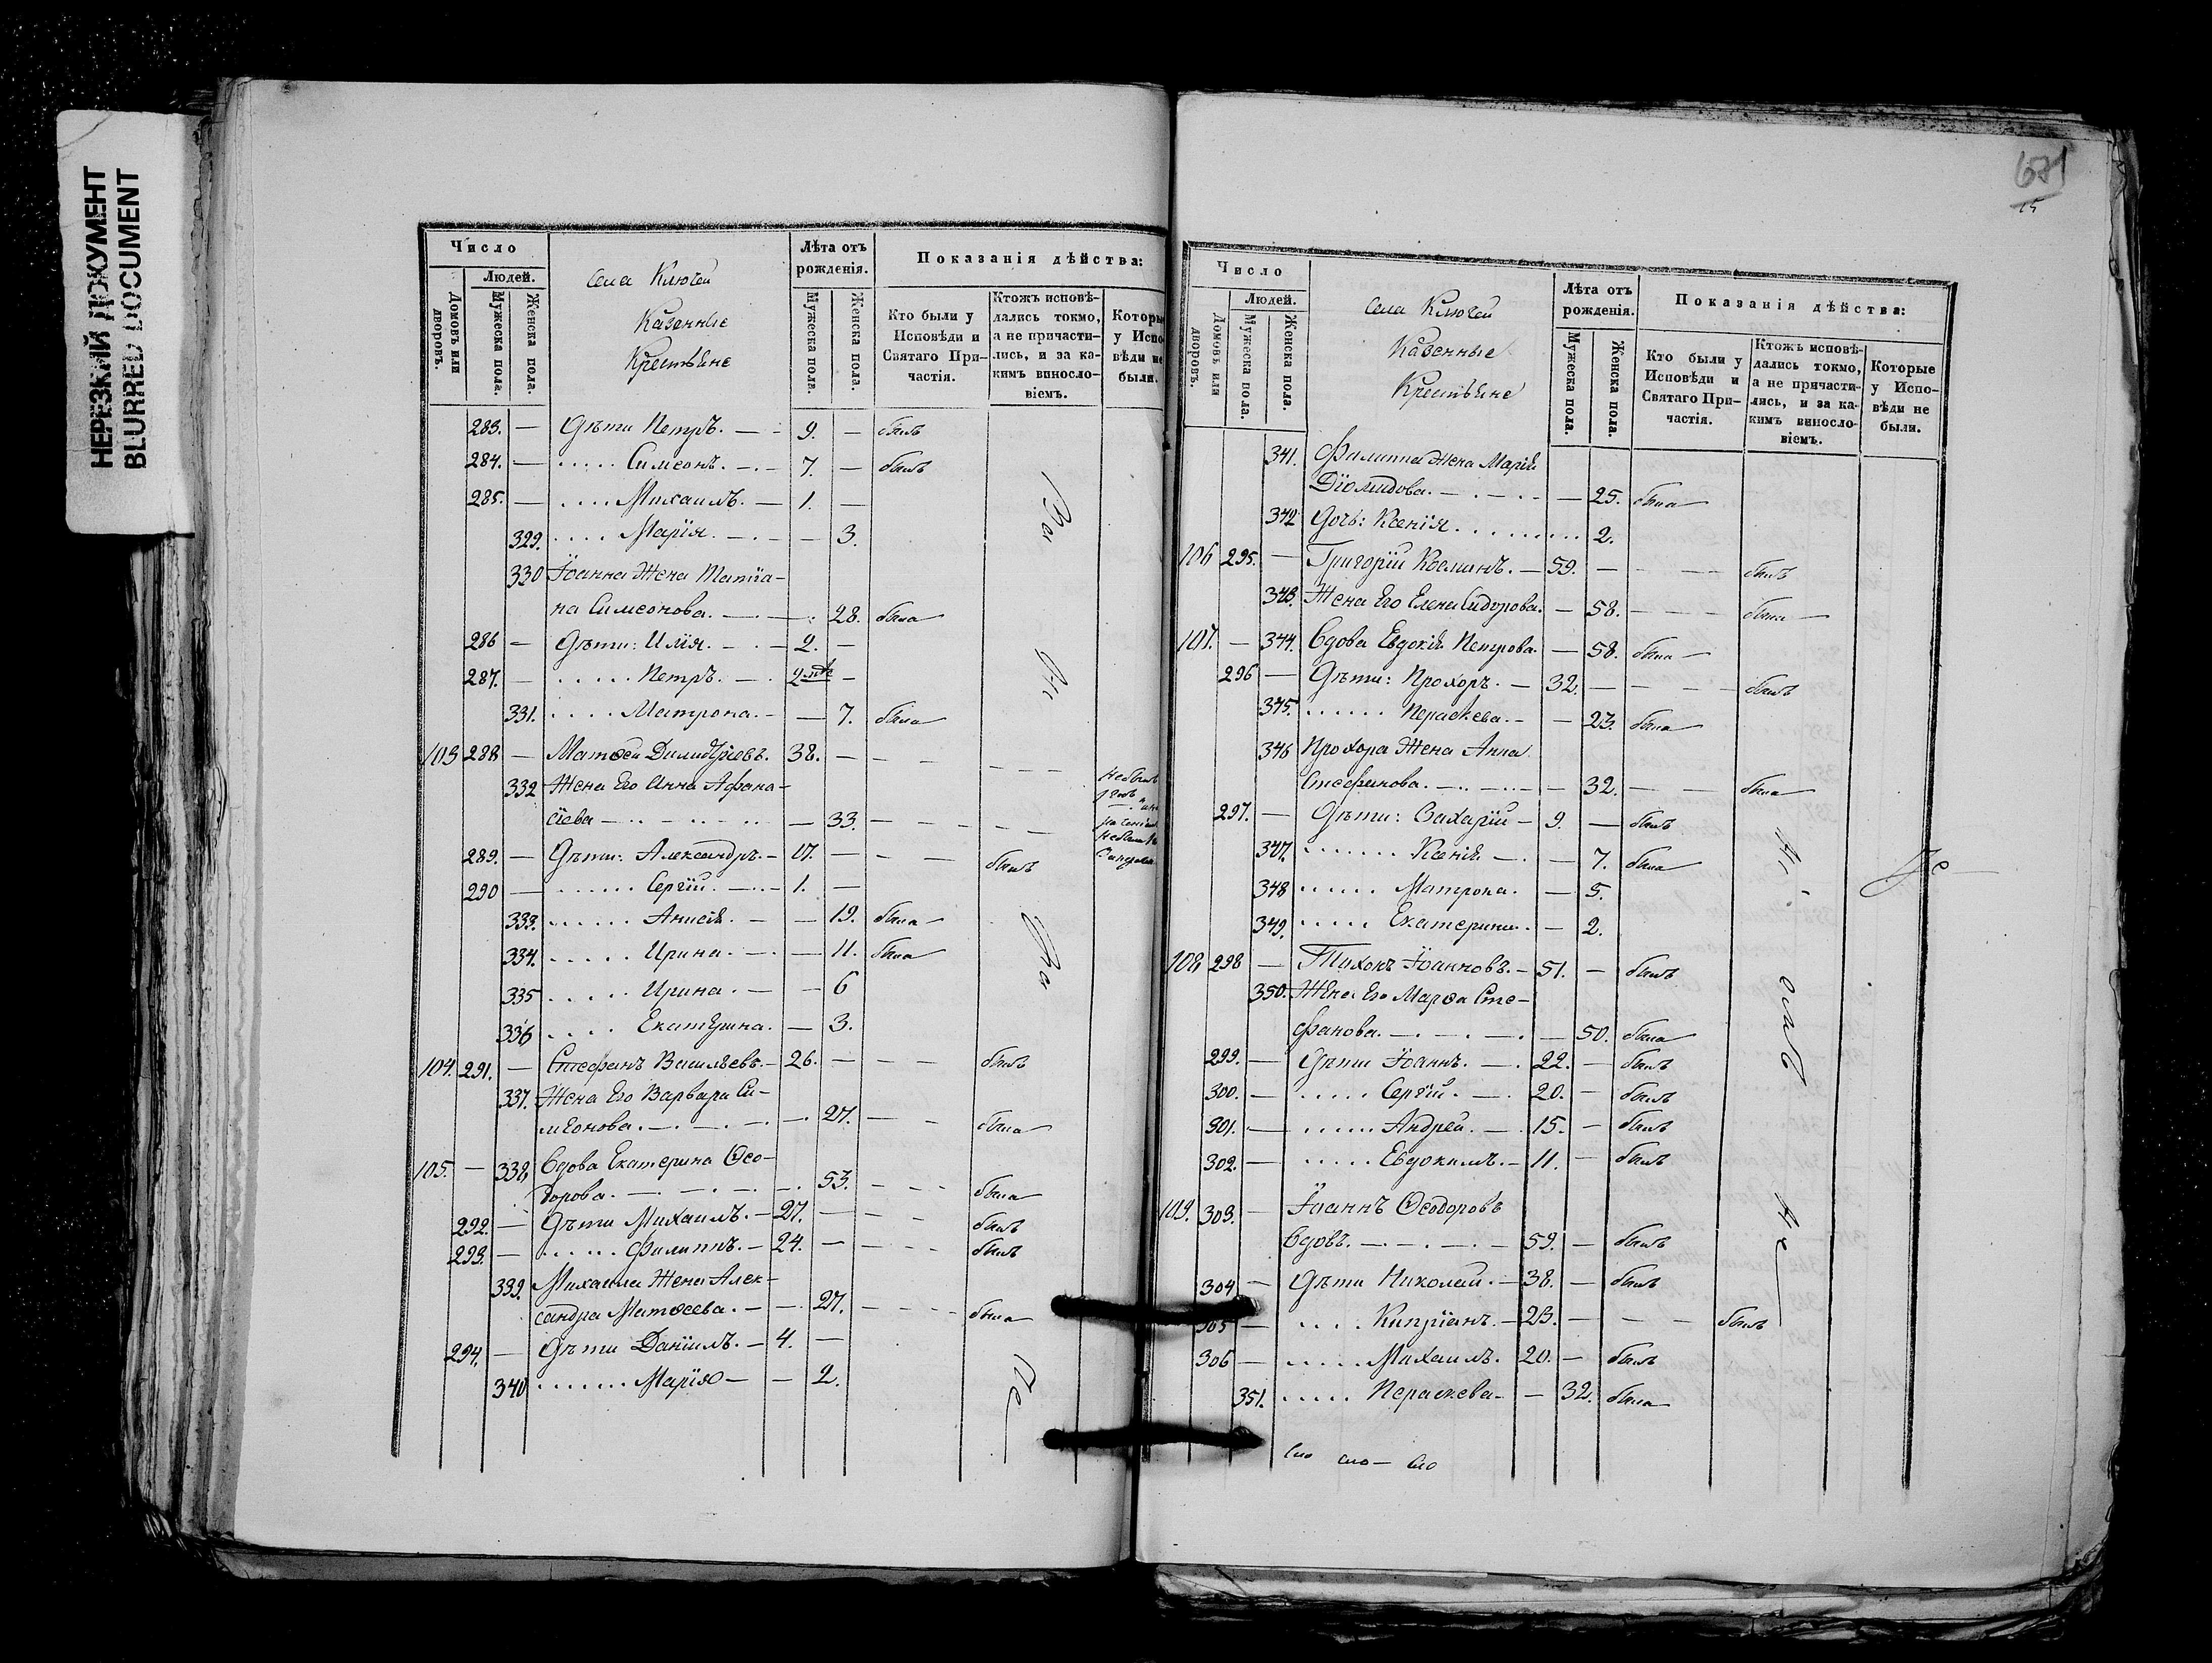 НЕРЕЗКИЙ ДОКУМЕНТ
BLURRED DOCUMENT
Число
Людей.
Домовъ или дворовъ.
Мужеска пола.
Женска пола.
Села Ключей
Казенные
Крестьяне
Лѣта отъ рожденія.
Мужеска пола.
Женска пола.
Показанія дѣйства:
Кто были у Исповѣди и Святаго При-частія.
Ктожъ исповѣ-дались токмо, а не причасти-лись, и за ка-кимъ винносло-віемъ.
Которые у Испо-вѣди не были.
283. — Дѣти Петръ. — 9. — былъ
284. — ..... Симеонъ. — 7. — былъ
285. — .... Михаилъ. — 1. —
329. .... Марія. — — 3.
330 Іоанна Жена Татіа-
на Симеонова. — 28. была
286 — Дѣти: Илія. — 2. —
287. — ..... Петръ. — 2 —
331. .... Матрона. — — 7. была
103 288 — Матѳей Димитріевъ. 38. —
332 Жена Его Анна Афана-
сіева — — 33. —
289. — Дѣти: Александръ. — 17. — былъ
290 — ...... Сергій. — 1. —
333. ...... Анисія. — — 19. была
334. ..... Ирина. — — 11. была
335 ..... Ирина. — — 6
336 .... Екатерина. — 3.
104. 291. — Стефанъ Васильевъ. — 26. — былъ
337. Жена Его Варвара Си-
меонова. — 27. — была
105. — 338. Вдова Екатерина Ѳео-
дорова. — 53. была
292. — Дѣти Михаилъ. — 27. — былъ
293. — ...... Филиппъ. — 24. — былъ
339. Михаила Жена Алек-
сандра Матѳеева. — 27. была
294. — Дѣти Даніилъ. — 4. —
340 ....... Марія — — 2.
681
15
Число
Людей.
Домовъ или дворовъ.
Мужеска пола.
Женска пола.
Села Ключей
Казенные
Крестьяне
Лѣта отъ рожденія.
Мужеска пола.
Женска пола.
Показанія дѣйства:
Кто были у Исповѣди и Святаго При-частія.
Ктожъ исповѣ-дались токмо, а не причасти-лись, и за ка-кимъ винносло-віемъ.
Которые у Испо-вѣди не были.
341. Филиппа Жена Марія
Діомидова. — — 25. была
342 Дочь: Ксенія. ........ 2.
106 295. — Григорій Косминъ. — 59. — былъ
343. Жена Его Елена Сидорова. — 58. — была
107. — 344. Вдова Евдокія Петрова. — 58. была
296 — Дѣти: Прохоръ. — 32. — былъ
345. ...... Параскева. — — 23. была
346 Прохора Жена Анна
Стефанова. — — 32. — была
297. — Дѣти: Захарій — 9. — былъ
347. ....... Ксенія — — 7. была
348 ..... Матрона. — 5.
349. ..... Екатерина. — 2.
108 298 — Тихонъ Іоанновъ. — 51. — былъ
350. Жена Его Марѳа Сте-
фанова. — — 50. была
299. — Дѣти Іоаннъ. — 22. — былъ
300. — ..... Сергій. — 20. — былъ
301. — ...... Андрей. — 15. — былъ
302. — ..... Евдокимъ. — 11. — былъ
109. 303. — Іоаннъ Ѳеодоровъ
Вдовъ. — 59. — былъ
304 — Дѣти Николай. — 38. — былъ
305 — .... Кипріанъ. — 23. — былъ
306 — ..... Михаилъ. 20. — былъ
351. ..... Параскева — — 32. была